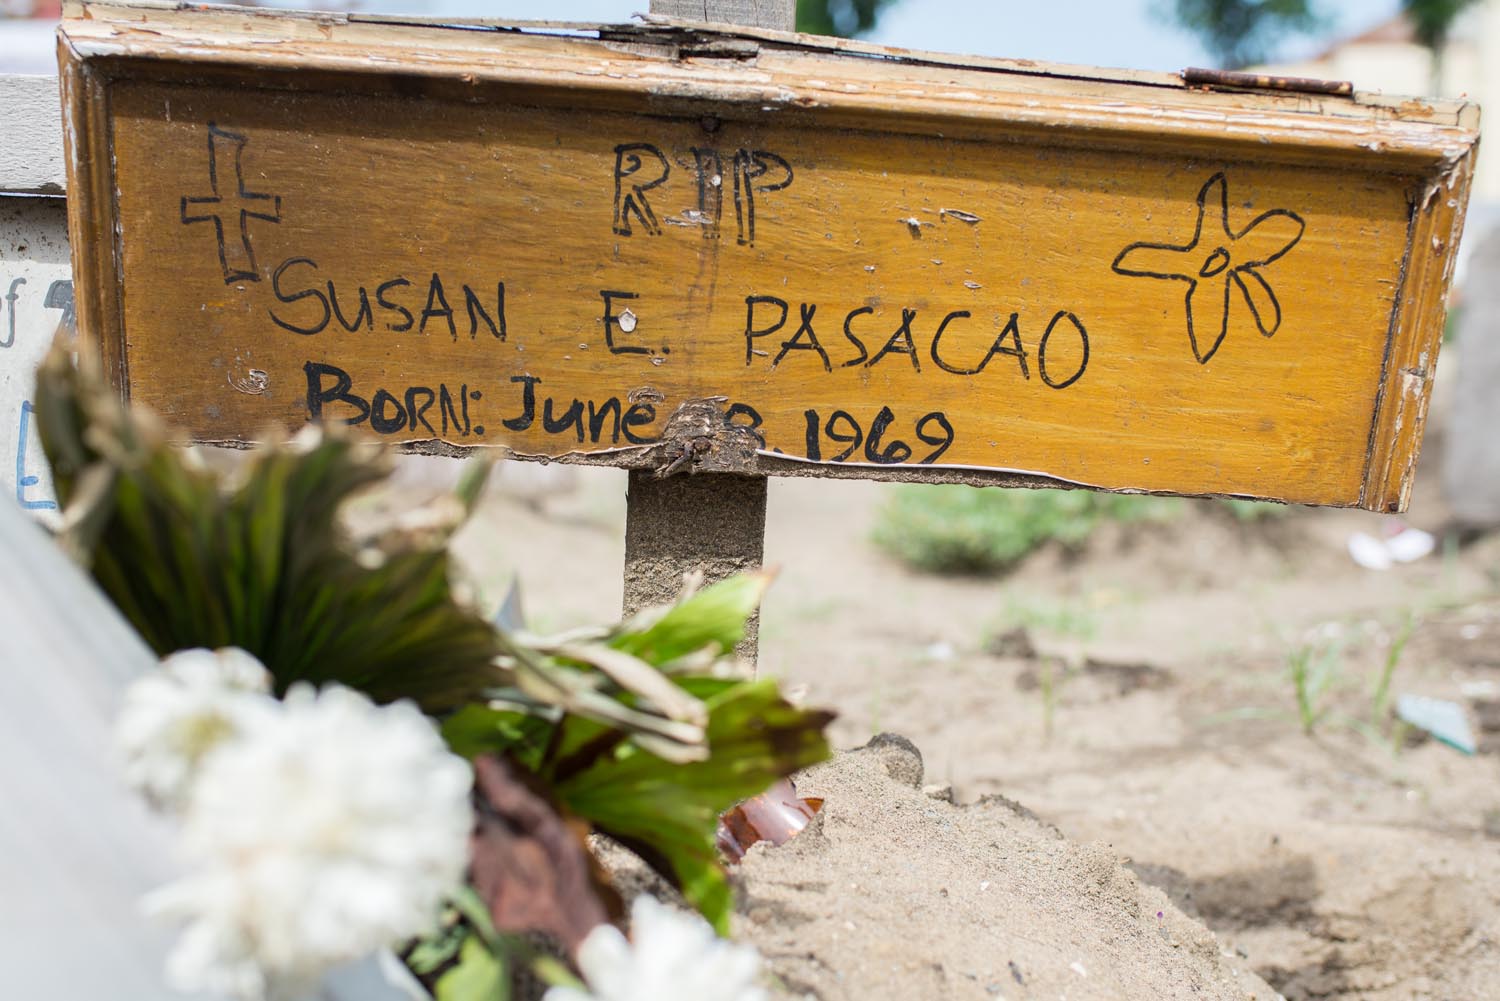 RIP
SUSAN E. PASACAO
BORN: June 1969
of
E